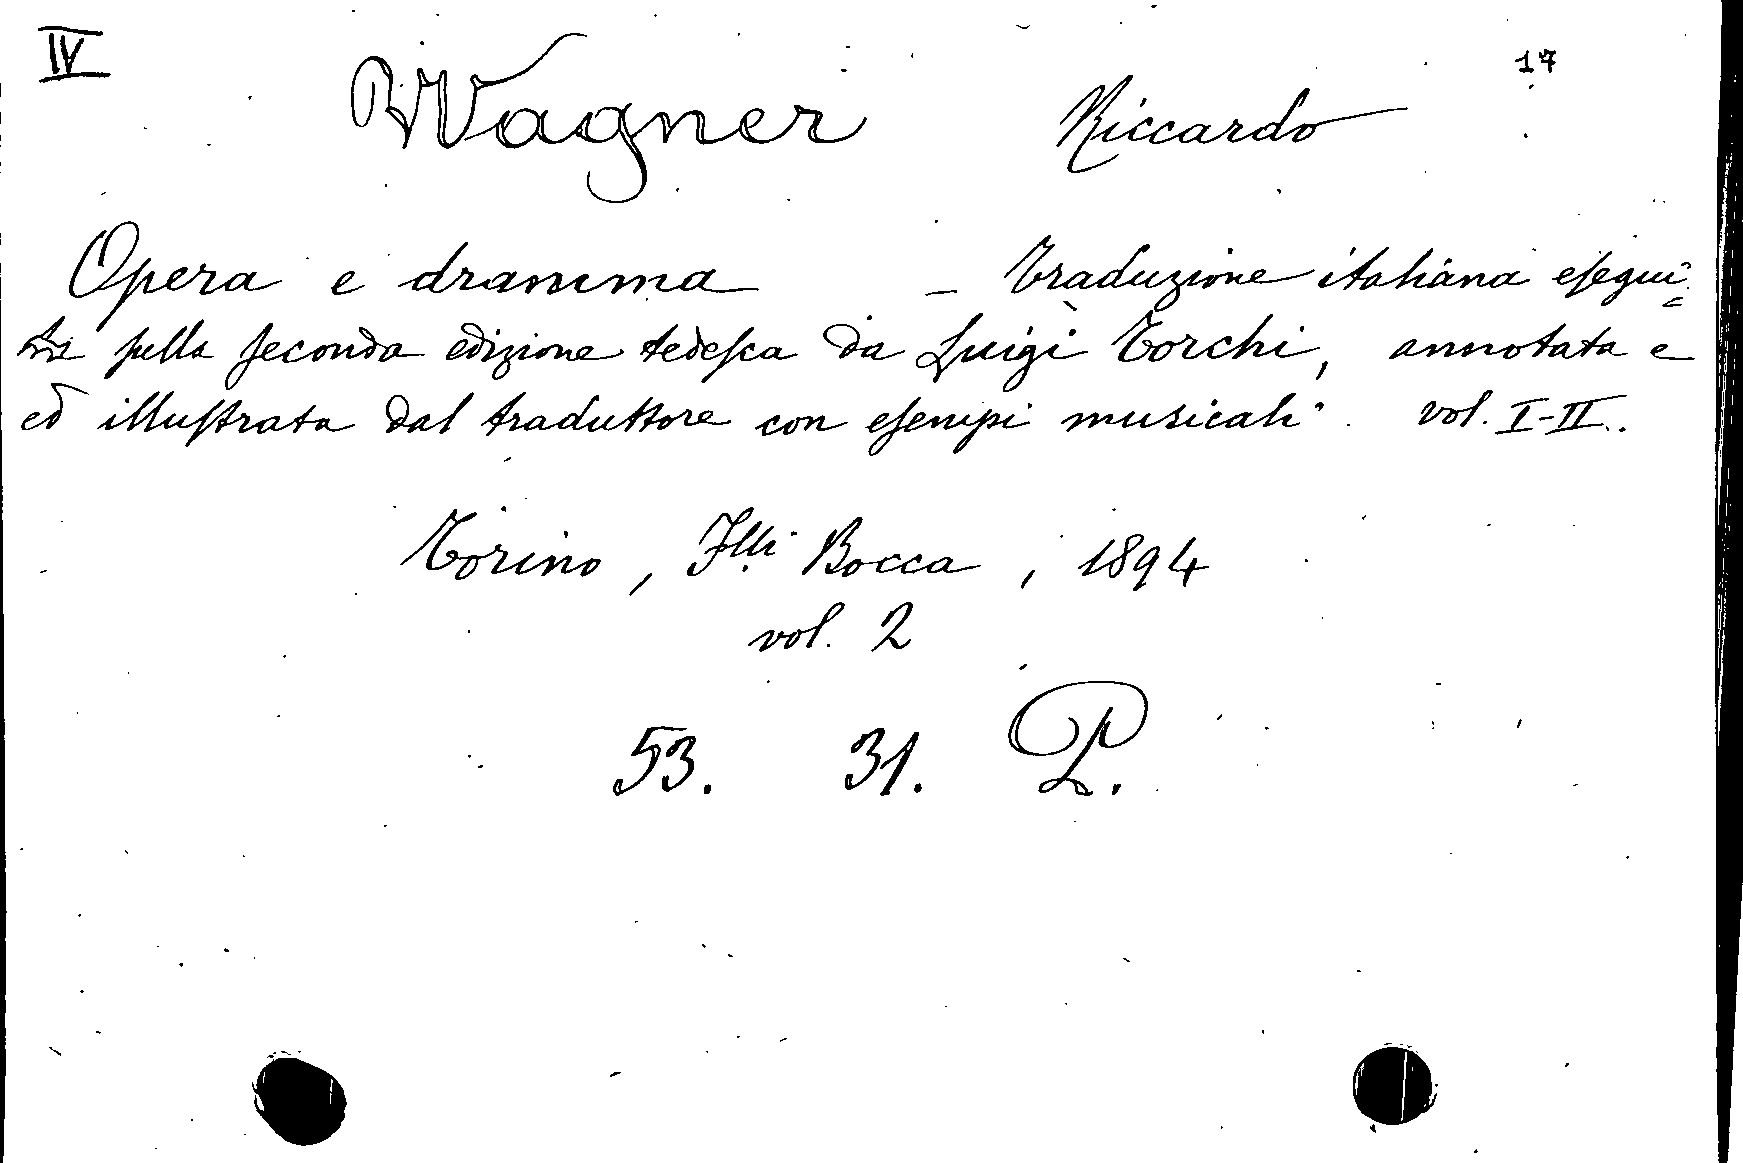 IV
17
Wagner Riccardo
Opera e dramma - Traduzione italiana esegui=
ta sulla seconda edizione tedesca da Luigi Torchi, annotata e
ed illustrata dal traduttore con esempi musicali. vol. I-II.
Torino, Flli Bocca, 1894
vol. 2
53. 31. P.